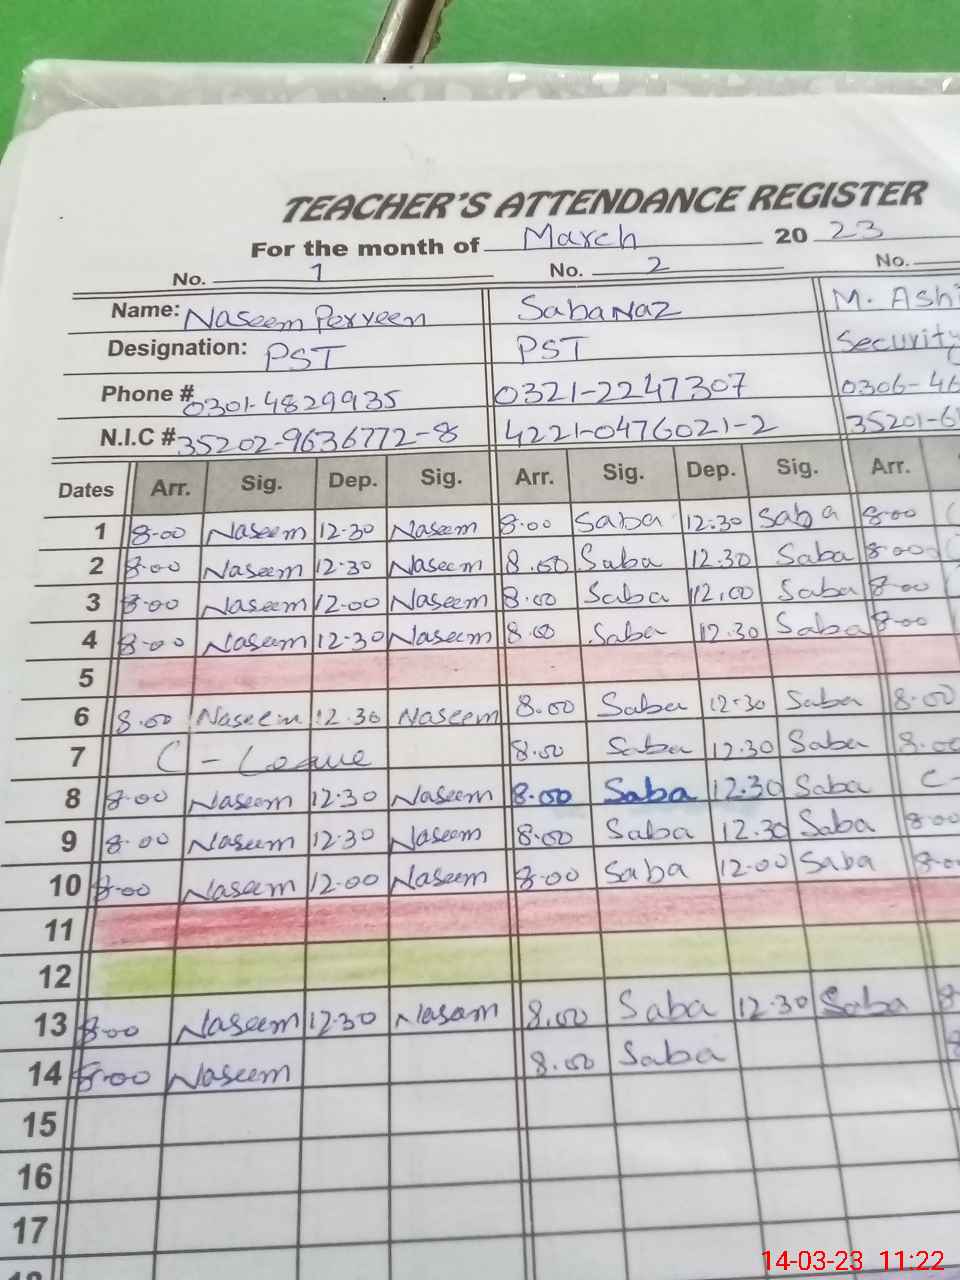 TEACHER'S ATTENDANCE REGISTER
For the month of March 20 23
No. 1 No. 2 No.
Name: Naseem Perveen Saba Naz M. Ashi
Designation: PST PST Security
Phone # 0301-4829935 0321-2247307 0306-46
N.I.C # 35202-9636772-8 4221-0476021-2 35201-6
Dates Arr. Sig. Dep. Sig. Arr. Sig. Dep. Sig. Arr.
1 8-00 Naseem 12-30 Naseem 8-00 Saba 12:30 Saba 8-00
2 8-00 Naseem 12-30 Naseem 8.00 Saba 12.30 Saba 8-00
3 8-00 Naseem 12-00 Naseem 8.00 Saba 12.00 Saba 8-00
4 8-00 Naseem 12-30 Naseem 8.00 Saba 12.30 Saba 8-00
5
6 8.00 Naseem 12.30 Naseem 8.00 Saba 12.30 Saba 8.00
7 C - Leave 8.00 Saba 12.30 Saba 8.00
8 8-00 Naseem 12-30 Naseem 8.00 Saba 12.30 Saba C-
9 8-00 Naseem 12-30 Naseem 8.00 Saba 12.30 Saba 8-00
10 8-00 Naseem 12-00 Naseem 8-00 Saba 12-00 Saba 8-00
11
12
13 8-00 Naseem 12-30 Naseem 8.00 Saba 12-30 Saba 8-
14 8-00 Naseem 8.00 Saba 8
15
16
17
14-03-23 11:22